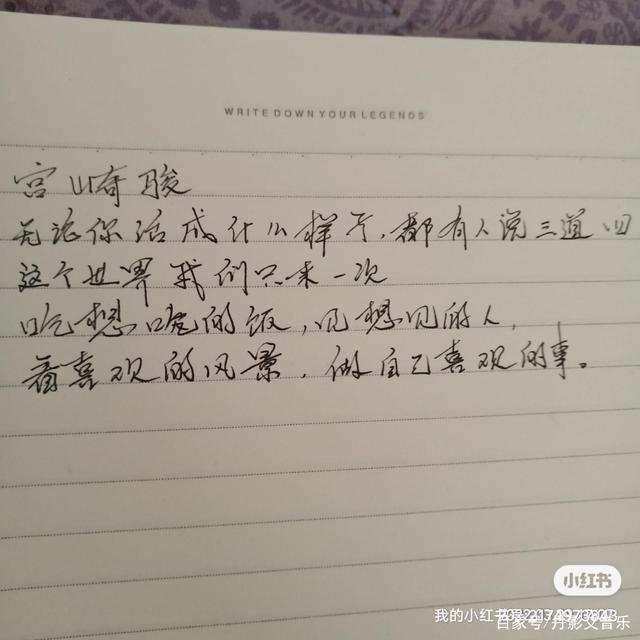 WRITE DOWN YOUR LEGENDS
宫崎骏
无论你活成什么样子，都有人说三道四
这个世界我们只来一次
吃想吃的饭，见想见的人，
看喜欢的风景，做自己喜欢的事。
小红书
我的小红书号
百家号/丹影交音乐